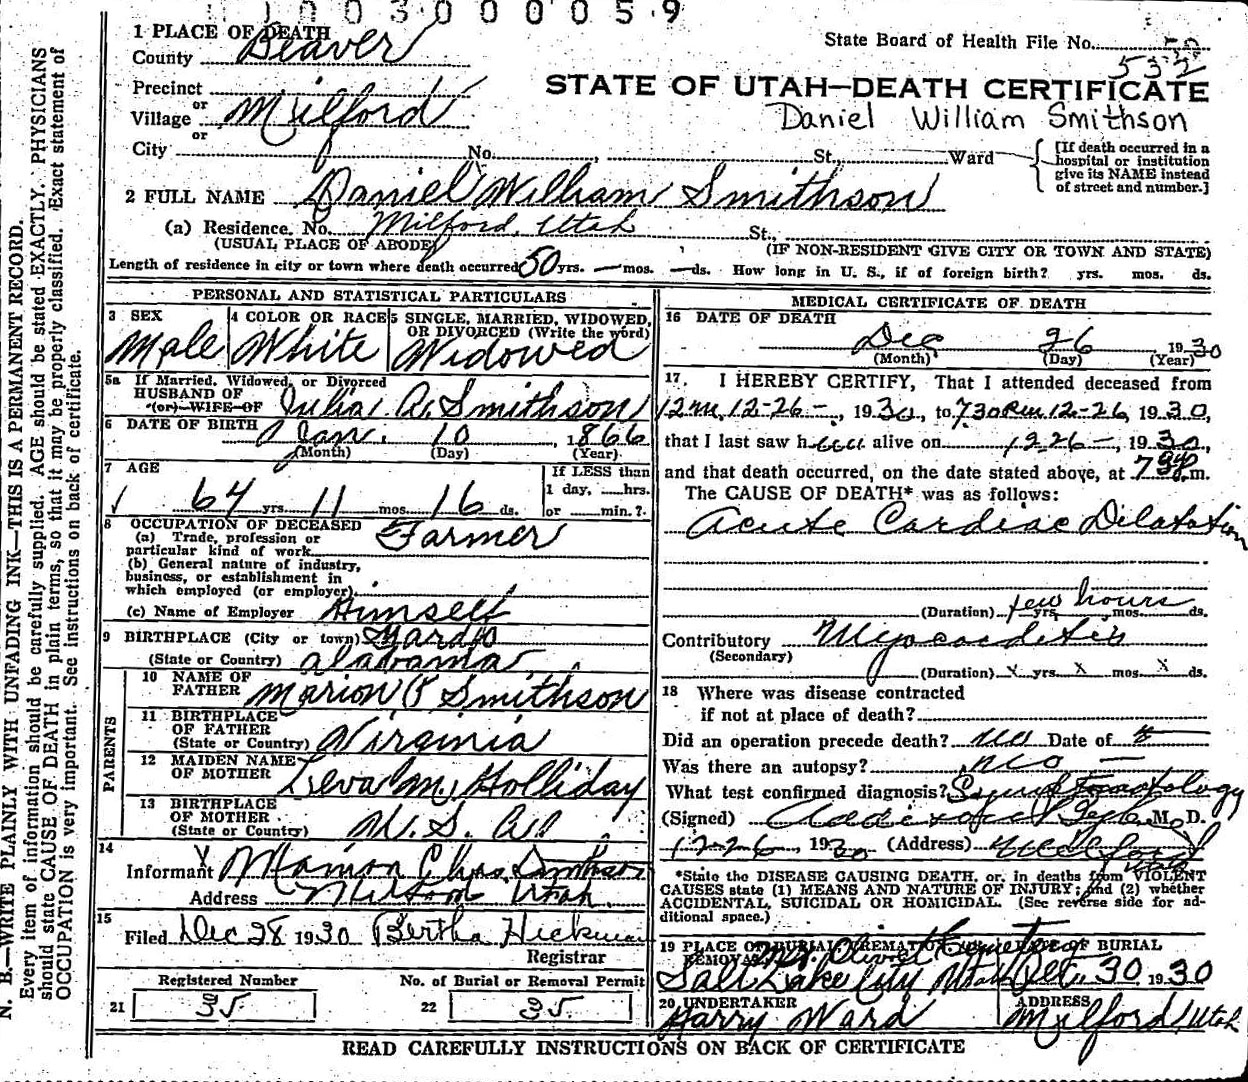 0 0 3 0 0 0 0 5 9
1 PLACE OF DEATH
County Beaver
State Board of Health File No. 532
STATE OF UTAH—DEATH CERTIFICATE
Daniel William Smithson
Precinct
or
Village Milford
or
City No. , St., Ward
[If death occurred in a hospital or institution give its NAME instead of street and number.]
2 FULL NAME Daniel William Smithson
(a) Residence. No. Milford, Utah St.,
(USUAL PLACE OF ABODE) (IF NON-RESIDENT GIVE CITY OR TOWN AND STATE)
Length of residence in city or town where death occurred 50 yrs. — mos. — ds. How long in U. S., if of foreign birth? yrs. mos. ds.
PERSONAL AND STATISTICAL PARTICULARS
3 SEX Male
4 COLOR OR RACE White
5 SINGLE, MARRIED, WIDOWED, OR DIVORCED (Write the word) Widowed
5a If Married, Widowed, or Divorced
HUSBAND OF
(or) WIFE OF Julia A. Smithson
6 DATE OF BIRTH Jan. 10, 1866
(Month) (Day) (Year)
7 AGE 64 yrs. 11 mos. 16 ds.
If LESS than 1 day, hrs. or min.?
8 OCCUPATION OF DECEASED
(a) Trade, profession or particular kind of work Farmer
(b) General nature of industry, business, or establishment in which employed (or employer)
(c) Name of Employer Himself
9 BIRTHPLACE (City or town)
(State or Country) Alabama
PARENTS
10 NAME OF FATHER Marion Smithson
11 BIRTHPLACE OF FATHER (State or Country) Virginia
12 MAIDEN NAME OF MOTHER Holliday
13 BIRTHPLACE OF MOTHER (State or Country) U. S. A.
14 Informant Marion Chas Smithson
Address Milford Utah.
15 Filed Dec 28 1930 Bertha Hickman
Registrar
Registered Number No. of Burial or Removal Permit
21 35 22 35
MEDICAL CERTIFICATE OF DEATH
16 DATE OF DEATH Dec 26 1930
(Month) (Day) (Year)
17. I HEREBY CERTIFY, That I attended deceased from
12 m, 12-26-, 1930, to 7 30 P.m. 12-26, 1930,
that I last saw him alive on 12 26-, 1930,
and that death occurred, on the date stated above, at 7 30 p.m.
The CAUSE OF DEATH* was as follows:
Acute Cardiac Dilatation
(Duration) few hours yrs. mos. ds.
Contributory Myocarditis
(Secondary)
(Duration) x yrs. x mos. x ds.
18 Where was disease contracted
if not at place of death?
Did an operation precede death? no Date of
Was there an autopsy? no —
What test confirmed diagnosis? Symptomatology
(Signed) M. D.
12-26, 1930 (Address) Milford Utah
*State the DISEASE CAUSING DEATH, or, in deaths from VIOLENT
CAUSES state (1) MEANS AND NATURE OF INJURY; and (2) whether
ACCIDENTAL, SUICIDAL OR HOMICIDAL. (See reverse side for additional space.)
19 PLACE OF BURIAL, CREMATION OR REMOVAL DATE OF BURIAL
Mt. Olivet Cemetery
Salt Lake City Utah Dec. 30 1930
20 UNDERTAKER ADDRESS
Harry Ward Milford, Utah
READ CAREFULLY INSTRUCTIONS ON BACK OF CERTIFICATE
N. B.—WRITE PLAINLY WITH UNFADING INK—THIS IS A PERMANENT RECORD.
Every item of information should be carefully supplied. AGE should be stated EXACTLY. PHYSICIANS
should state CAUSE OF DEATH in plain terms, so that it may be properly classified. Exact statement of
OCCUPATION is very important. See instructions on back of certificate.